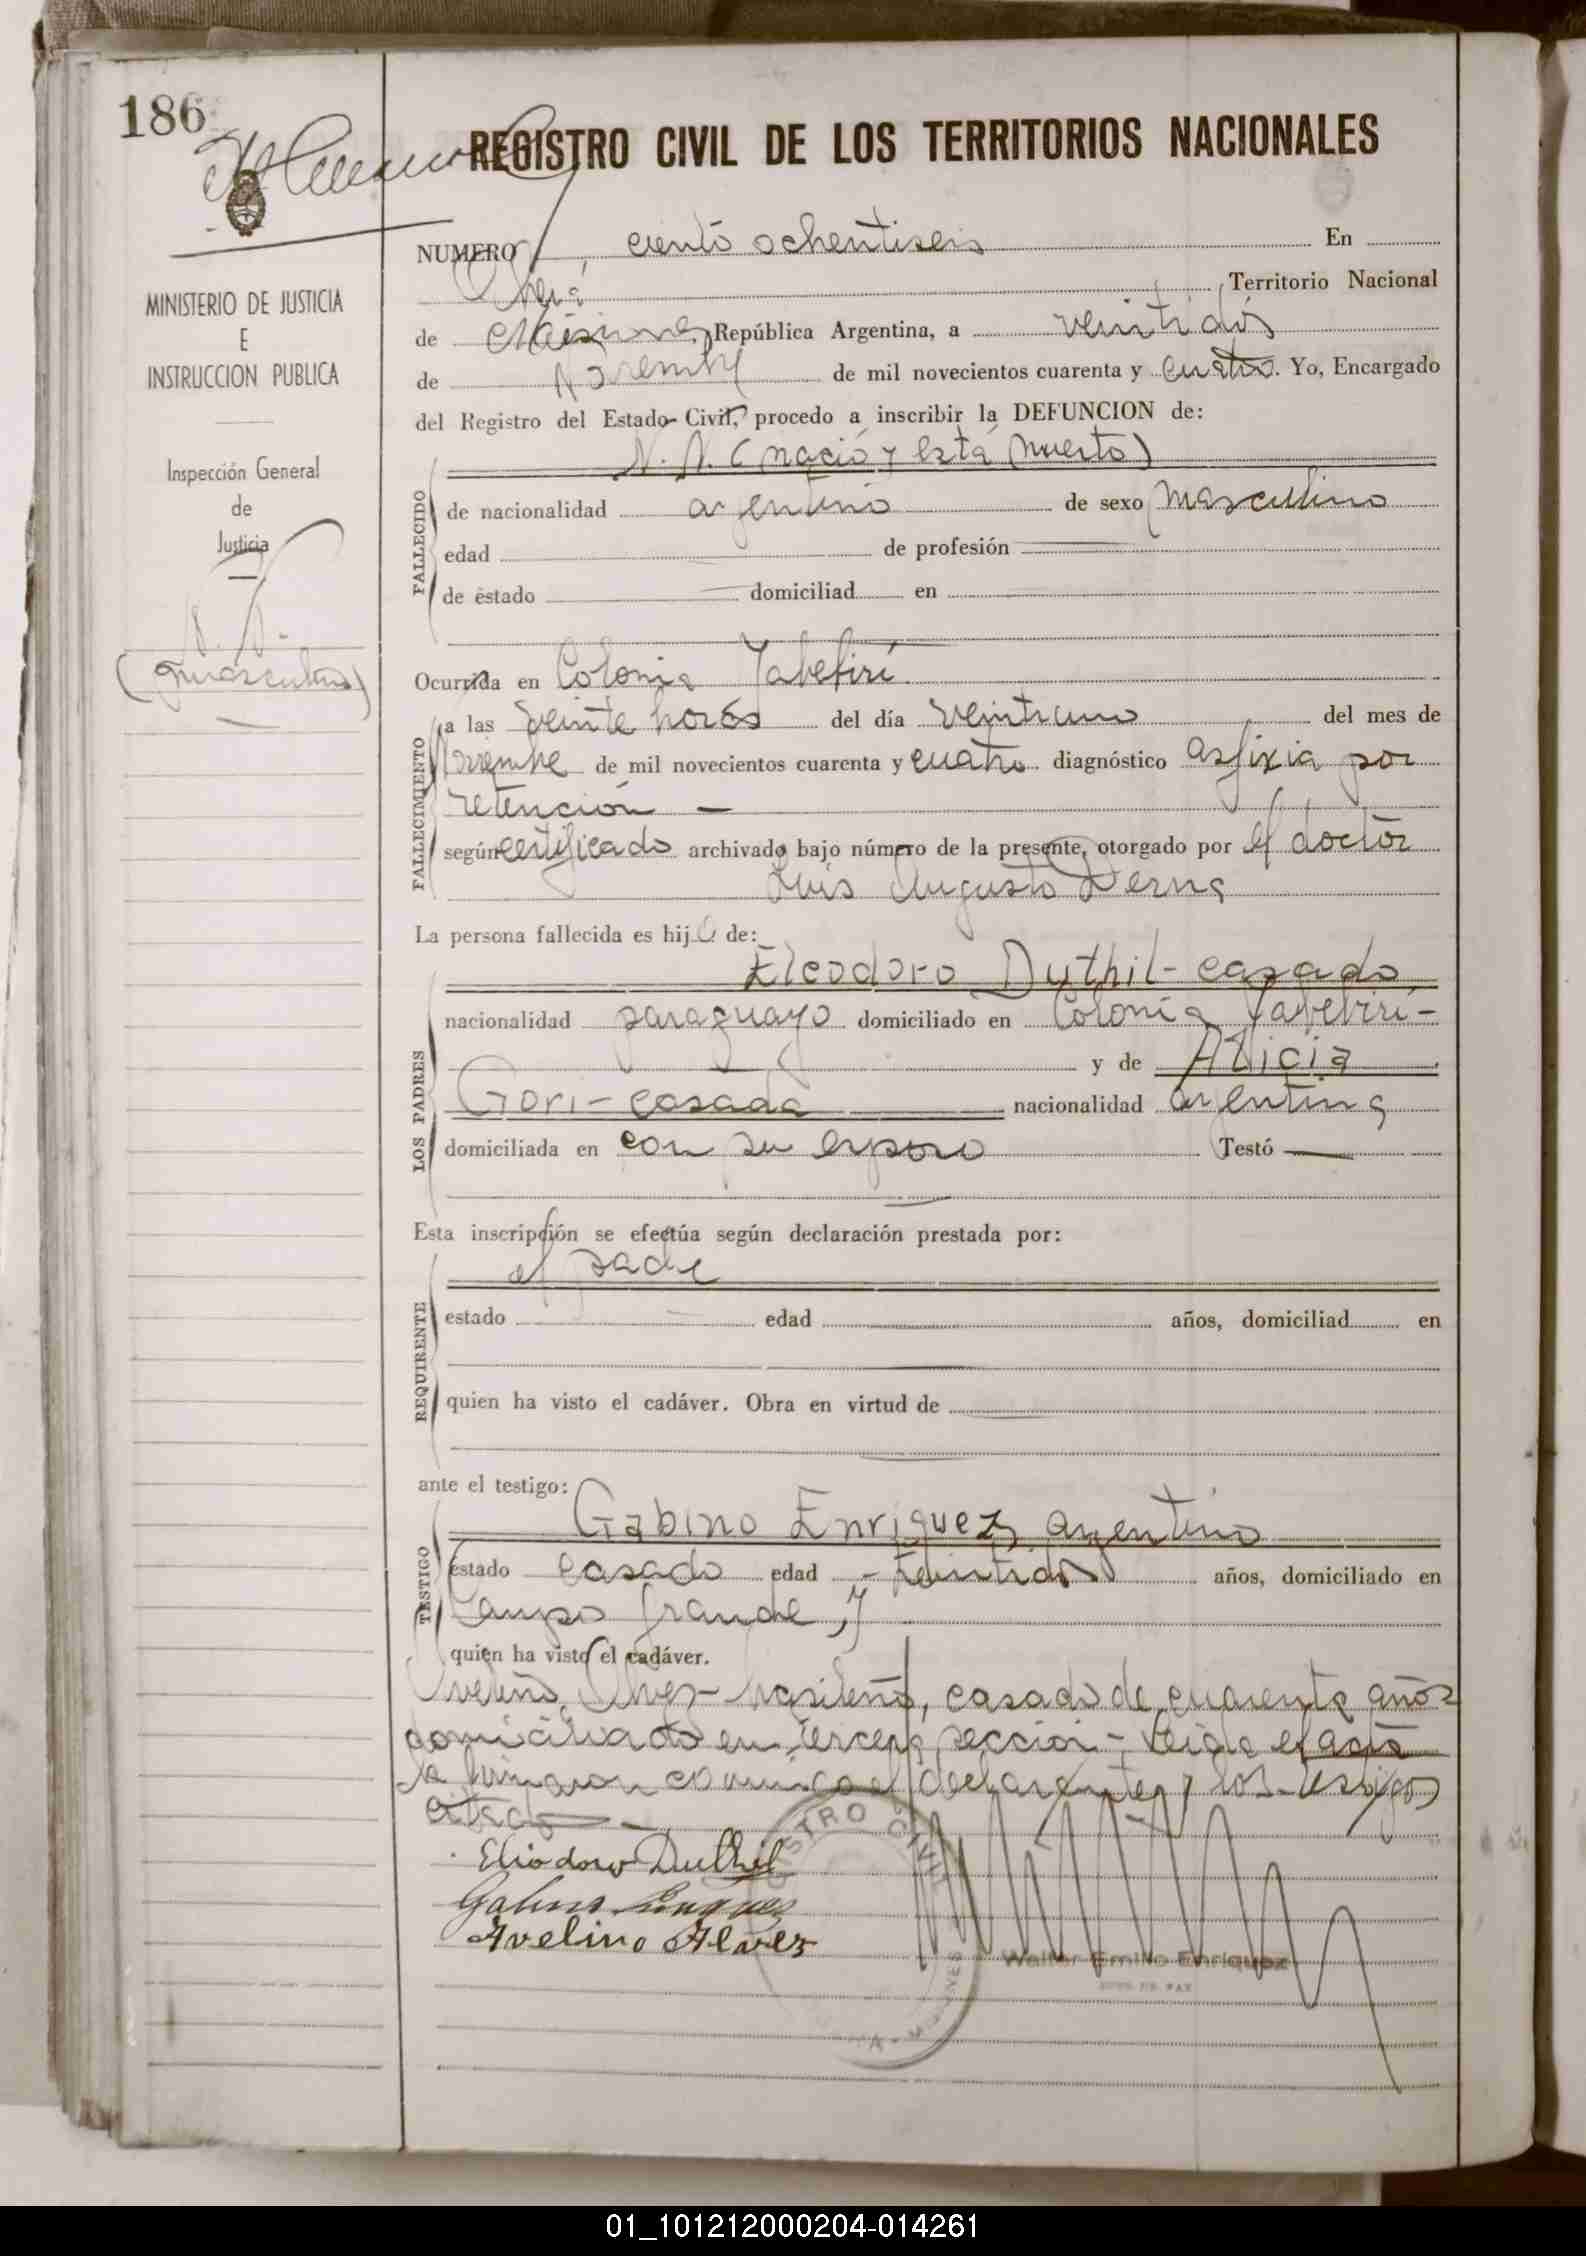 186
REGISTRO CIVIL DE LOS TERRITORIOS NACIONALES
NUMERO ciento ochentiseis En
Oberá Territorio Nacional
de Misiones, República Argentina, a veintidós
de Noviembre de mil novecientos cuarenta y cuatro. Yo, Encargado
del Registro del Estado Civil, procedo a inscribir la DEFUNCION de:
N. N. (nació y está muerto)
FALLECIDO
de nacionalidad argentino de sexo masculino
edad de profesión
de estado domiciliad en
MINISTERIO DE JUSTICIA
E
INSTRUCCION PUBLICA
Inspección General
de
Justicia
N. N.
(masculino)
Ocurrida en Colonia Yabebirí
FALLECIMIENTO
a las veinte horas del día veintiuno del mes de
Noviembre de mil novecientos cuarenta y cuatro diagnóstico asfixia por
retención —
según certificado archivado bajo número de la presente, otorgado por el doctor
Luis Augusto Derna
La persona fallecida es hijo de:
LOS PADRES
Eleodoro Duthil - casado
nacionalidad paraguayo domiciliado en Colonia Yabebirí -
y de Alicia
Gori - casada nacionalidad argentina
domiciliada en con su esposo Testó —
Esta inscripción se efectúa según declaración prestada por:
REQUIRENTE
el padre
estado edad años, domiciliad en
quien ha visto el cadáver. Obra en virtud de
ante el testigo:
TESTIGO
Gabino Enriquez, argentino
estado casado edad - treintidos años, domiciliado en
Campo Grande, y
quien ha visto el cadáver.
Avelino Alvez - brasileño, casado de cuarenta años
domiciliado en tercera sección - Leida el acta
la firmaron conmigo el declarante y los testigos
citados —
Eliodoro Duthil
Gabino Enriquez
Avelino Alvez
REGISTRO CIVIL
MISIONES
Walter Emilio Enriquez
JUEZ DE PAZ
01_101212000204-014261